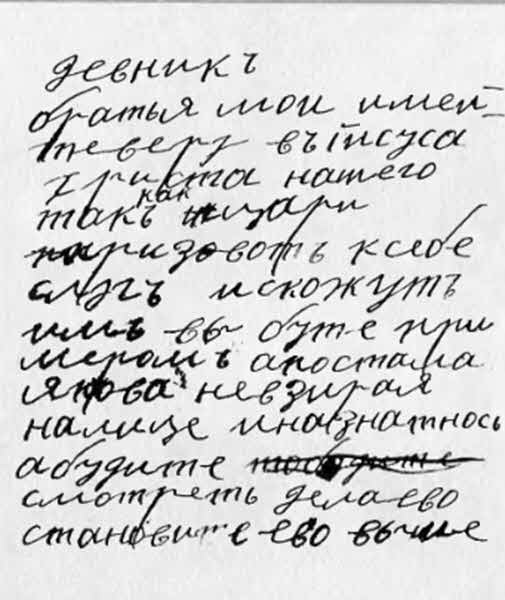 девникъ
братья мои имей-
теверу въ Iисуса
Христа нашего
такъ как цари
призовотъ ксебе
слугъ искожутъ
имъ вы буте при
меромъ апостала
Якова невзирая
налице иназнатнось
абудите
смотреть делаево
становите ево выше